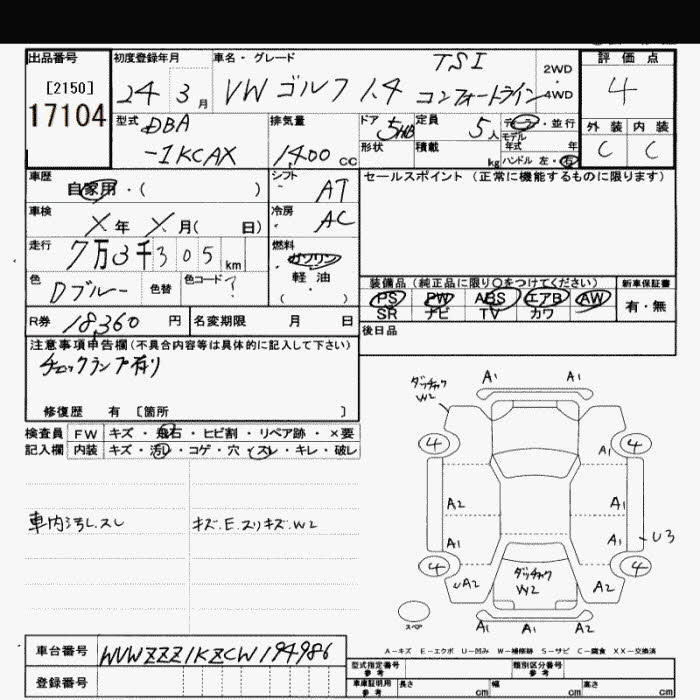 出品番号 初度登録年月 車名・グレード 評価点
[2150] 24年3月 VW ゴルフ 1.4 TSI コンフォートライン 2WD・4WD 4
17104
型式 DBA-1KCAX 排気量 1400 CC ドア 5HB 定員 5人 ディーラー・並行
モデル年式 年
形状 積載 kg ハンドル 左・右
外装 内装
C C
車歴 自家用・( ) シフト AT
セールスポイント (正常に機能するものに限ります)
車検 X年 X月( 日) 冷房 AC
走行 7万3千305km 燃料 ガソリン 軽・油 ( )
色 Dブルー 色替 色コード ?
装備品 (純正品に限り○をつけてください) 新車保証書
PS PW ABS エアB AW 有・無
SR ナビ TV カワ
R券 18,360円 名変期限 月 日
後日品
注意事項申告欄(不具合内容等は具体的に記入して下さい)
チェックランプ有り
修復歴 有 [箇所 ]
検査員 FW キズ・飛石・ヒビ割・リペア跡・×要
記入欄 内装 キズ・汚レ・コゲ・穴・スレ・キレ・破レ
車内汚レ.スレ キズ.E.スリキズ.W2
ダッチャク W2 A1 A1
4 4
A1
A2 A1
A1 A1 U3
4 4
UA2 ダッチャク W2 A2
スペア A1 A1 A2
A-キズ E-エクボ U-凹み W-補修跡 S-サビ C-腐食 XX-交換済
車台番号 WVWZZZ1KZCW194986
登録番号
型式指定番号 参考 類別区分番号 参考
車庫証明用 参考 長さ cm 幅 cm 高さ cm